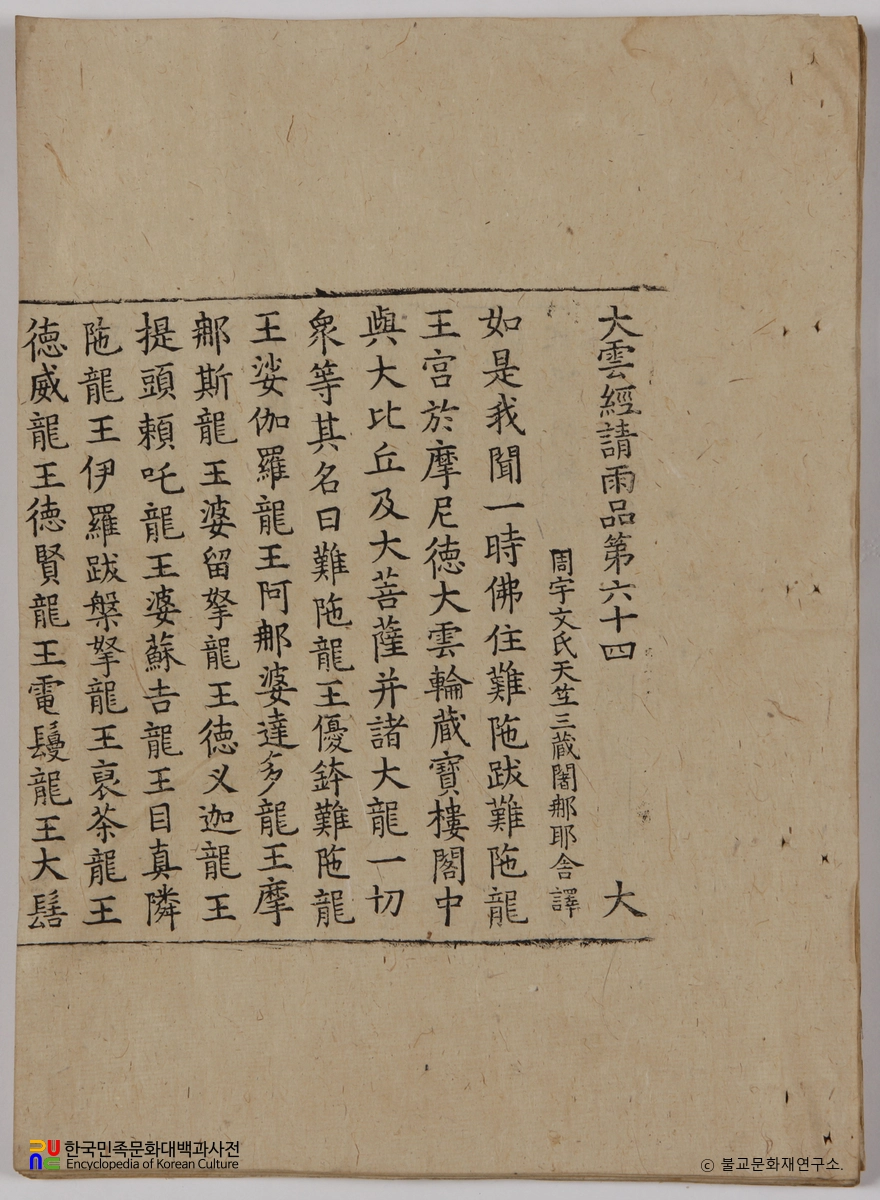 大雲經請雨品第六十四 大
周宇文氏天竺三藏闍那耶舍譯
如是我聞一時佛住難陁跋難陁龍
王宮於摩尼德大雲輪蔵寶樓閣中
與大比丘及大菩薩并諸大龍一切
衆等其名曰難陁龍王優鉢難陁龍
王娑伽羅龍王阿那婆達多龍王摩
那斯龍王婆留拏龍王德叉迦龍王
提頭頼吒龍王婆蘇吉龍王目真隣
陁龍王伊羅跋槃拏龍王裒荼龍王
德威龍王德賢龍王電鬘龍王大髻
한국민족문화대백과사전
Encyclopedia of Korean Culture
© 불교문화재연구소.